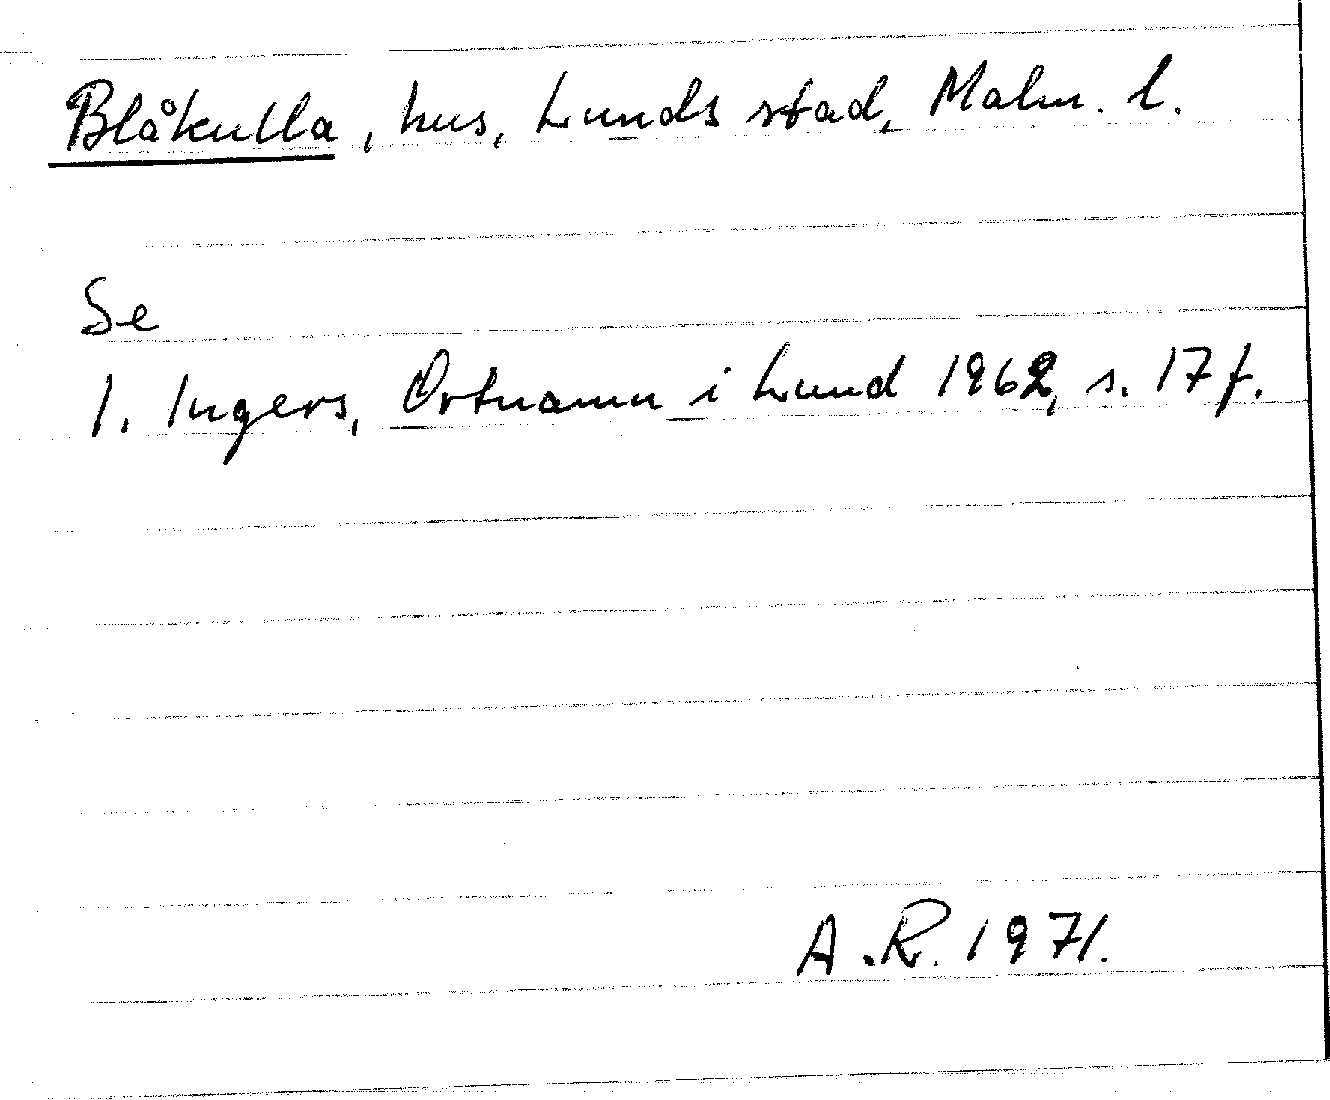 Blåkulla, hus, Lunds stad, Malm. l.
Se
I. Ingers, Ortnamn i Lund 1962, s. 17 f.
A.R. 1971.